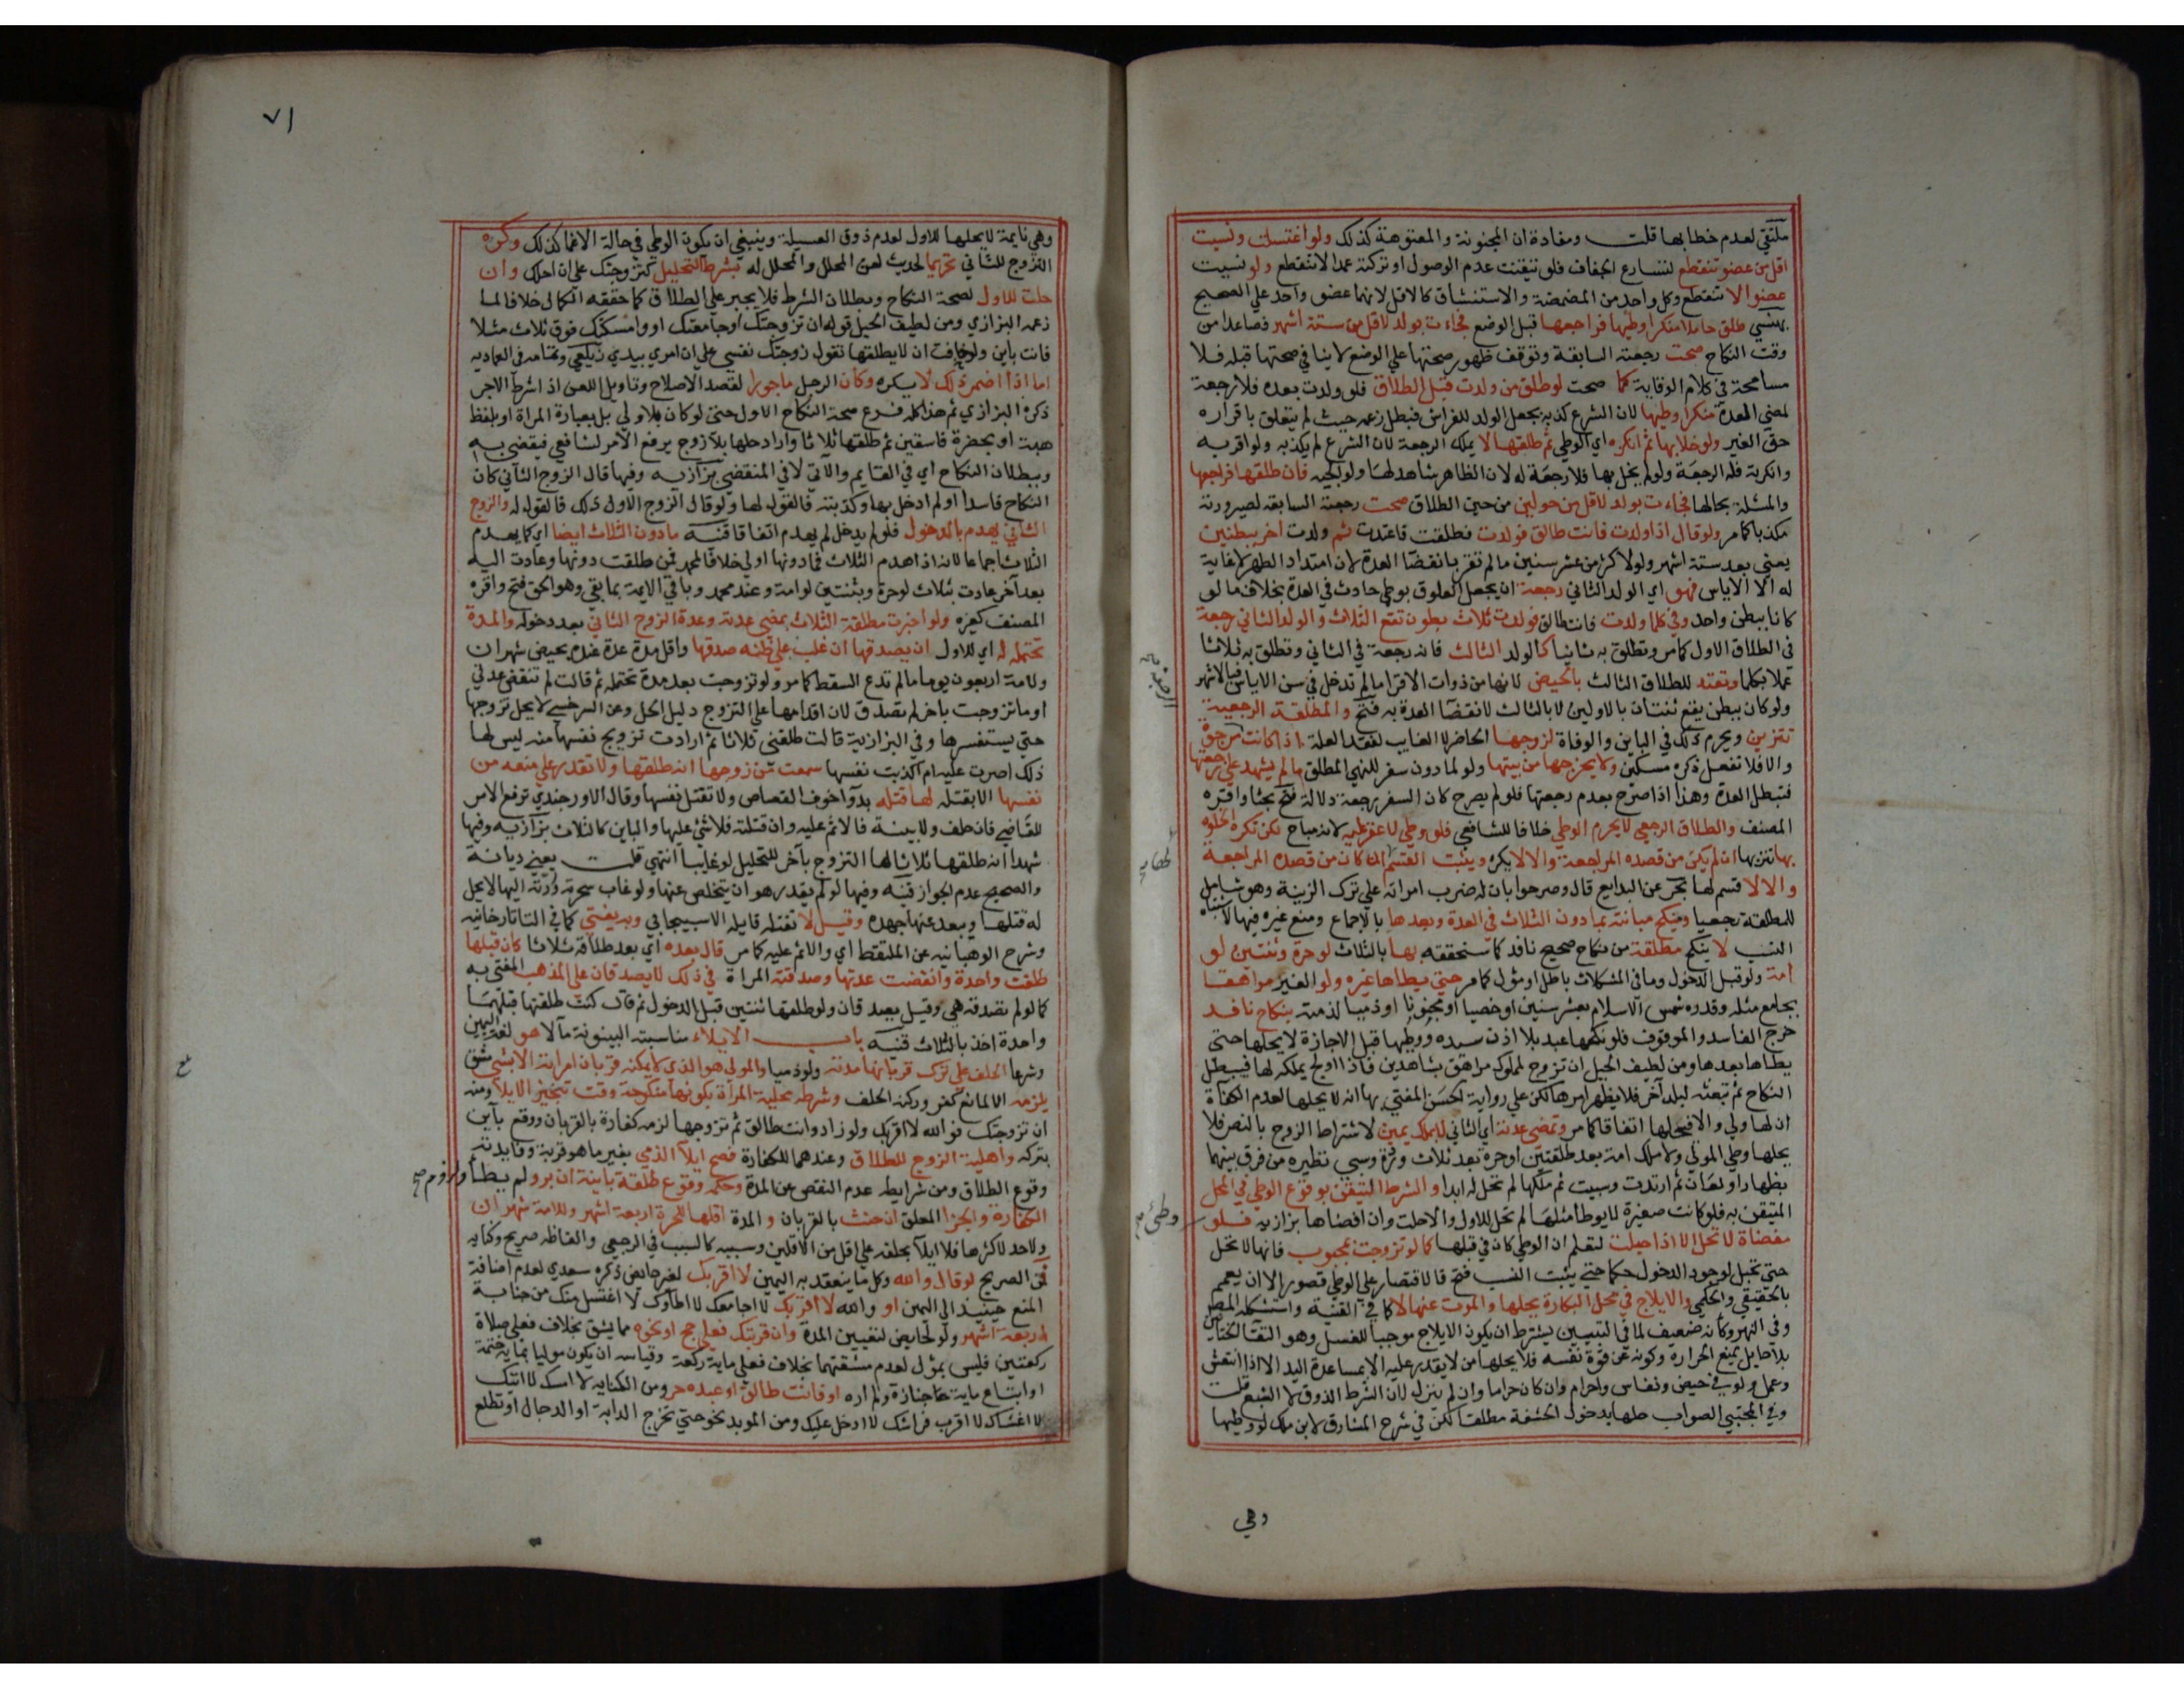 ملتقي لعدم خطابها قلت ومفاده ان المجنونة والمعتوهة كذلك ولو اغتسلت ونسيت
اقل من عضو تنقطع لتسارع الجفاف فلو تيقنت عدم الوصول او تركته عمدا لا تنقطع ولو نسيت
عضوا لا تنقطع وكل واحد من المضمضة والاستنشاق كالاقل لانهما عضو واحد علي الصحيح
بهنسي طلق حاملا منكرا وطيها فراجعها قبل الوضع فجاءت بولد لاقل من ستة اشهر فصاعدا من
وقت النكاح صحت رجعته السابقة وتوقف ظهور صحتها علي الوضع لا ينافي صحتها قبله فلا
مسامحة في كلام الوقاية كما صحت لو طلق من ولدت قبل الطلاق فلو ولدت بعده فلا رجعة
لمضي المدة منكرا وطيها لان الشرع كذبه بجعل الولد للفراش فبطل زعمه حيث لم يتعلق باقراره
حق الغير ولو خلا بها ثم انكره اي الوطي ثم طلقها لا يملك الرجعة لان الشرع لم يكذبه ولو اقر به
وانكرته فله الرجعة ولو لم يخل بها فلا رجعة له لان الظاهر شاهد لها ولوالجيه فان طلقها فراجعها
والمسئلة بحالها فجاءت بولد لاقل من حولين من حين الطلاق صحت رجعته السابقة لصيرورته
مكذبا كما مر ولو قال اذا ولدت فانت طالق فولدت فطلقت فاعتدت ثم ولدت اخر ببطنين
يعني بعد ستة اشهر ولو لاكثر من عشر سنين ما لم تقر بانقضا العدة لان امتداد الطهر لا غاية
له الا الاياس فهو اي الولد الثاني رجعة ان يجعل العلوق بوطي حادث في العدة بخلاف ما لو
كانا ببطن واحد وفي كلما ولدت فانت طالق فولدت ثلاث بطون تقع الثلاث والولد الثاني رجعة
في الطلاق الاول كما مر وتطلق به ثانيا كالولد الثالث فانه رجعة في الثاني وتطلق به ثلاثا
عملا بكلما وتعتد للطلاق الثالث بالحيض لانها من ذوات الاقرا ما لم تدخل في سن الاياس فبالاشهر
ولو كان ببطن يقع ثنتان بالاولين لا بالثالث لانقضا العدة به فتح والمطلقة الرجعية
تتزين ويحرم ذلك في الباين والوفاة لزوجها الحاضر لا الغايب لفقد العلة اذا كانت مرجوة
والا فلا تفعل ذكره مسكين ولا يخرجها من بيتها ولو لما دون سفر للنهي المطلق ما لم يشهد علي رجعتها
فتبطل العدة وهذا اذا صرح بعدم رجعتها فلو لم يصرح كان السفر رجعة دلالة فتح بحثا واقره
المصنف والطلاق الرجعي لا يحرم الوطي خلافا للشافعي فلو وطي لا عقر عليه لانه مباح لكن تكره الخلوة
بها تنزيها ان لم يكن من قصده المراجعة والا لا يكره ويثبت القسم لها ان كان من قصده المراجعة
والا لا قسم لها بحر عن البدايع قال وصرحوا بان له ضرب امراته علي ترك الزينة وهو شامل
للمطلقة رجعيا وينكح مبانته بما دون الثلاث في العدة وبعدها بالاجماع ومنع غيره فيها لاشتباه
النسب لا ينكح مطلقة من نكاح صحيح نافذ كما سنحققه بها بالثلاث لو حرة وثنتين لو
امة ولو قبل الدخول وما في المشكلات باطل او مؤول كما مر حتي يطاها غيره ولو الغير مراهقا
يجامع مثله وقدره شمس الاسلام بعشر سنين او خصيا او مجنونا او ذميا لذمية بنكاح نافذ
خرج الفاسد والموقوف فلو نكحها عبد بلا اذن سيده ووطيها قبل الاجازة لا يحلها حتي
يطاها بعدها ومن لطيف الحيل ان تزوج لمملوك مراهق بشاهدين فاذا اولج يملكه لها فيبطل
النكاح ثم تبعثه لبلد آخر فلا يظهر امرها لكن علي رواية الحسن المفتي بها انه لا يحلها لعدم الكفاءة
ان لها ولي والا فيحلها اتفاقا كما مر وتمضي عدته اي الثاني لا بملك يمين لاشتراط الزوج بالنص فلا
يحلها وطي المولي ولا ملك امة بعد طلقتين او حرة بعد ثلاث وردة وسبي نظيره من فرق بينهما
بظهار او لعان ثم ارتدت وسبيت ثم ملكها لم تحل له ابدا والشرط التيقن بوقوع الوطي في المحل
المتيقن به فلو كانت صغيرة لا يوطا مثلها لم تحل للاول والا حلت وان افضاها بزازيه فلو
مفضاة لا تحل الا اذا حبلت لتعلم ان الوطي كان في قبلها كما لو تزوجت بمجبوب فانها لا تحل
حتي تحبل لوجود الدخول حكما حتي يثبت النسب فتح فالاقتصار علي الوطي قصور الا ان يعمم
بالحقيقي والحكمي والايلاج في محل البكارة يحلها والموت عنها لا كما في القنية واستشكله المصنف
وفي النهر وكانه ضعيف لما في التبيين يشترط ان يكون الايلاج موجبا للغسل وهو التقا الختانين
بلا حايل يمنع الحرارة وكونه عن قوة نفسه فلا يحلها من لا يقدر عليه الا بمساعدة اليد الا اذا انتعش
وعمل ولو في حيض ونفاس واحرام وان كان حراما وان لم ينزل لان الشرط الذوق لا الشبع قلت
وفي المجتبي الصواب حلها بدخول الحشفة مطلقا لكن في شرح المشارق لابن ملك لو وطيها
وهي
٧١
وهي نايمة لا يحلها للاول لعدم ذوق العسيلة وينبغي ان يكون الوطي في حالة الاغما كذلك وكره
التزوج للثاني تحريما لحديث لعن المحلل والمحلل له بشرط التحليل كتزوجتك علي ان احلك وان
حلت للاول لصحة النكاح وبطلان الشرط فلا يجبر علي الطلاق كما حققه الكمال خلافا لما
زعمه البزازي ومن لطيف الحيل قوله ان تزوجتك او جامعتك او وامسكتك فوق ثلاث مثلا
فانت باين ولو خافت ان لا يطلقها تقول زوجتك نفسي علي ان امري بيدي زيلعي وتمامه في العماديه
اما اذا اضمر ذلك لا يكره وكان الرجل ماجورا لقصد الاصلاح وتاويل اللعن اذا شرط الاجر
ذكره البزازي ثم هذا كله فرع صحة النكاح الاول حتي لو كان بلا ولي بل بعبارة المراة او بلفظ
هبة او بحضرة فاسقين ثم طلقها ثلاثا واراد حلها بلا زوج يرفع الامر لشافعي فيقضي به
وببطلان النكاح اي في القايم والآتي لا في المنقضي بزازيه وفيها قال الزوج الثاني كان
النكاح فاسدا او لم ادخل بها وكذبته فالقول لها ولو قال الزوج الاول ذلك فالقول له والزوج
الثاني يهدم بالدخول فلو لم يدخل لم يهدم اتفاقا قنيه ما دون الثلاث ايضا اي كما يهدم
الثلاث اجماعا لانه اذا هدم الثلاث فما دونها اولي خلافا لمحمد فمن طلقت دونها وعادت اليه
بعد آخر عادت بثلاث لو حرة وبثنتين لو امة وعند محمد وباقي الايمة بما بقي وهو الحق فتح واقره
المصنف كغيره ولو اخبرت مطلقة الثلاث بمضي عدته وعدة الزوج الثاني بعد دخوله والمدة
تحتمله له اي للاول ان يصدقها ان غلب علي ظنه صدقها واقل مدة عدة عنده بحيض شهران
ولامة اربعون يوما ما لم تدع السقط كما مر ولو تزوجت بعد مدة تحتمله ثم قالت لم تنقض عدتي
او ما تزوجت باخر لم تصدق لان اقدامها علي التزوج دليل الحل وعن السرخسي لا يحل تزوجها
حتي يستفسرها وفي البزازية قالت طلقني ثلاثا ثم ارادت تزويج نفسها منه ليس لها
ذلك اصرت عليه ام اكذبت نفسها سمعت من زوجها انه طلقها ولا تقدر علي منعه من
نفسها الا بقتله لها قتله بدوا خوف القصاص ولا تقتل نفسها وقال الاورجندي ترفع الامر
للقاضي فان حلف ولا بينة فالاثم عليه وان قتلته فلا شئ عليها والباين كالثلاث بزازيه وفيها
شهدا انه طلقها ثلاثا لها التزوج بآخر للتحليل لو غايبا انتهي قلت يعني ديانة
والصحيح عدم الجواز قنيه وفيها لو لم يقدر هو ان يتخلص عنها ولو غاب سحرته وردته اليها لا يحل
له قتلها ويبعد عنها جهده وقيل لا تقتله قايله الاسبيجابي وبه يفتي كما في التاتارخانيه
وشرح الوهبانيه عن الملتقط اي والاثم عليه كما مر قال بعده اي بعد طلاقه ثلاثا كان قبلها
طلقت واحدة وانقضت عدتها وصدقته المراة في ذلك لا يصدقان علي المذهب المفتي به
كما لو لم تصدقه هي وقيل يصدقان ولو طلقها ثنتين قبل الدخول ثم قال كنت طلقتها قبلهما
واحدة اخذ بالثلاث قنيه باب الايلاء مناسبته البينونة مآلا هو لغة اليمين
وشرعا الحلف علي ترك قربانها مدته ولو ذميا والمولي هو الذي لا يمكنه قربان امراته الا بشي مشق
يلزمه الا لمانع كفر وركنه الحلف وشرطه محلية المراة بكونها منكوحة وقت تنجيز الايلاء ومنه
ان تزوجتك فوالله لا اقربك ولو زاد وانت طالق ثم تزوجها لزمه كفارة بالقربان ووقع باين
بتركه واهلية الزوج للطلاق وعندهما للكفارة فصح ايلاء الذمي بغير ما هو قربة وفايدته
وقوع الطلاق ومن شرايطه عدم النقص عن المدة وحكمه وقوع طلقة باينة ان بر ولم يطا ولزوم صح
الكفارة والجزا المعلق ان حنث بالقربان والمدة اقلها للحرة اربعة اشهر وللامة شهران
ولا حد لاكثرها فلا ايلاء بحلفه علي اقل من الاقلين وسببه كالسبب في الرجعي والفاظه صريح وكناية
فمن الصريح لو قال والله وكل ما ينعقد به اليمين لا اقربك لغير حايض ذكره سعدي لعدم اضافة
المنع حينيذ الي اليمين او والله لا اقربك لا اجامعك لا اطاوك لا اغتسل منك من جنابة
اربعة اشهر ولو لحايض لتعيين المدة وان قربتك فعلي حج او نحوه مما يشق بخلاف فعلي صلاة
ركعتين فليس بمؤل لعدم مشقتهما بخلاف فعلي ماية ركعة وقياسه ان يكون موليا بماية ختمة
او اتباع ماية جنازة ولم اره او فانت طالق او عبده حر ومن الكناية لا امسك لا اتيك
لا اغشاك لا اقرب فراشك لا ادخل عليك ومن المويد نحو حتي تخرج الدابة او الدجال او تطلع